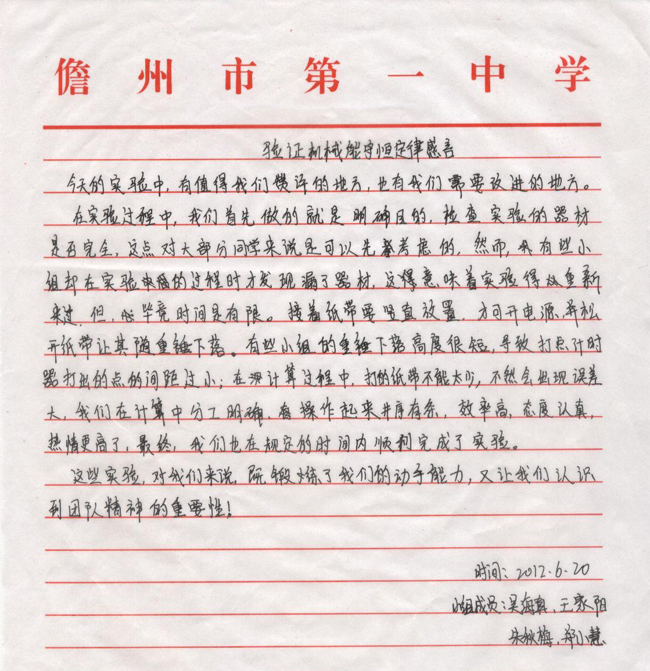 儋州市第一中学
验证机械能守恒定律感言
今天的实验中，有值得我们赞许的地方，也有我们需要改进的地方。
在实验过程中，我们首先做的就是明确目的，检查实验的器材
是否完全，这点对大部分同学来说是可以先考虑的，然而，有些小
组却在实验的过程时才发现漏了器材，这得意味着实验得从重新
来过，但，毕竟时间是有限。接着纸带要竖直放置，才可开电源，并松
开纸带让其随重锤下落。有些小组的重锤下落高度很短，导致打点计时
器打出的点的间距过小；在计算过程中，打的纸带不能太少，不然会出现误差
大，我们在计算中分工明确，操作起来井库有条，效率高，态度认真，
热情更高了，最终，我们也在规定的时间内顺利完成了实验。
这些实验，对我们来说，既锻炼了我们的动手能力，又让我们认识
到团队精神的重要性！
时间：2012.6.20
小组成员：吴海真，王家阳
朱秋梅，郑小慧